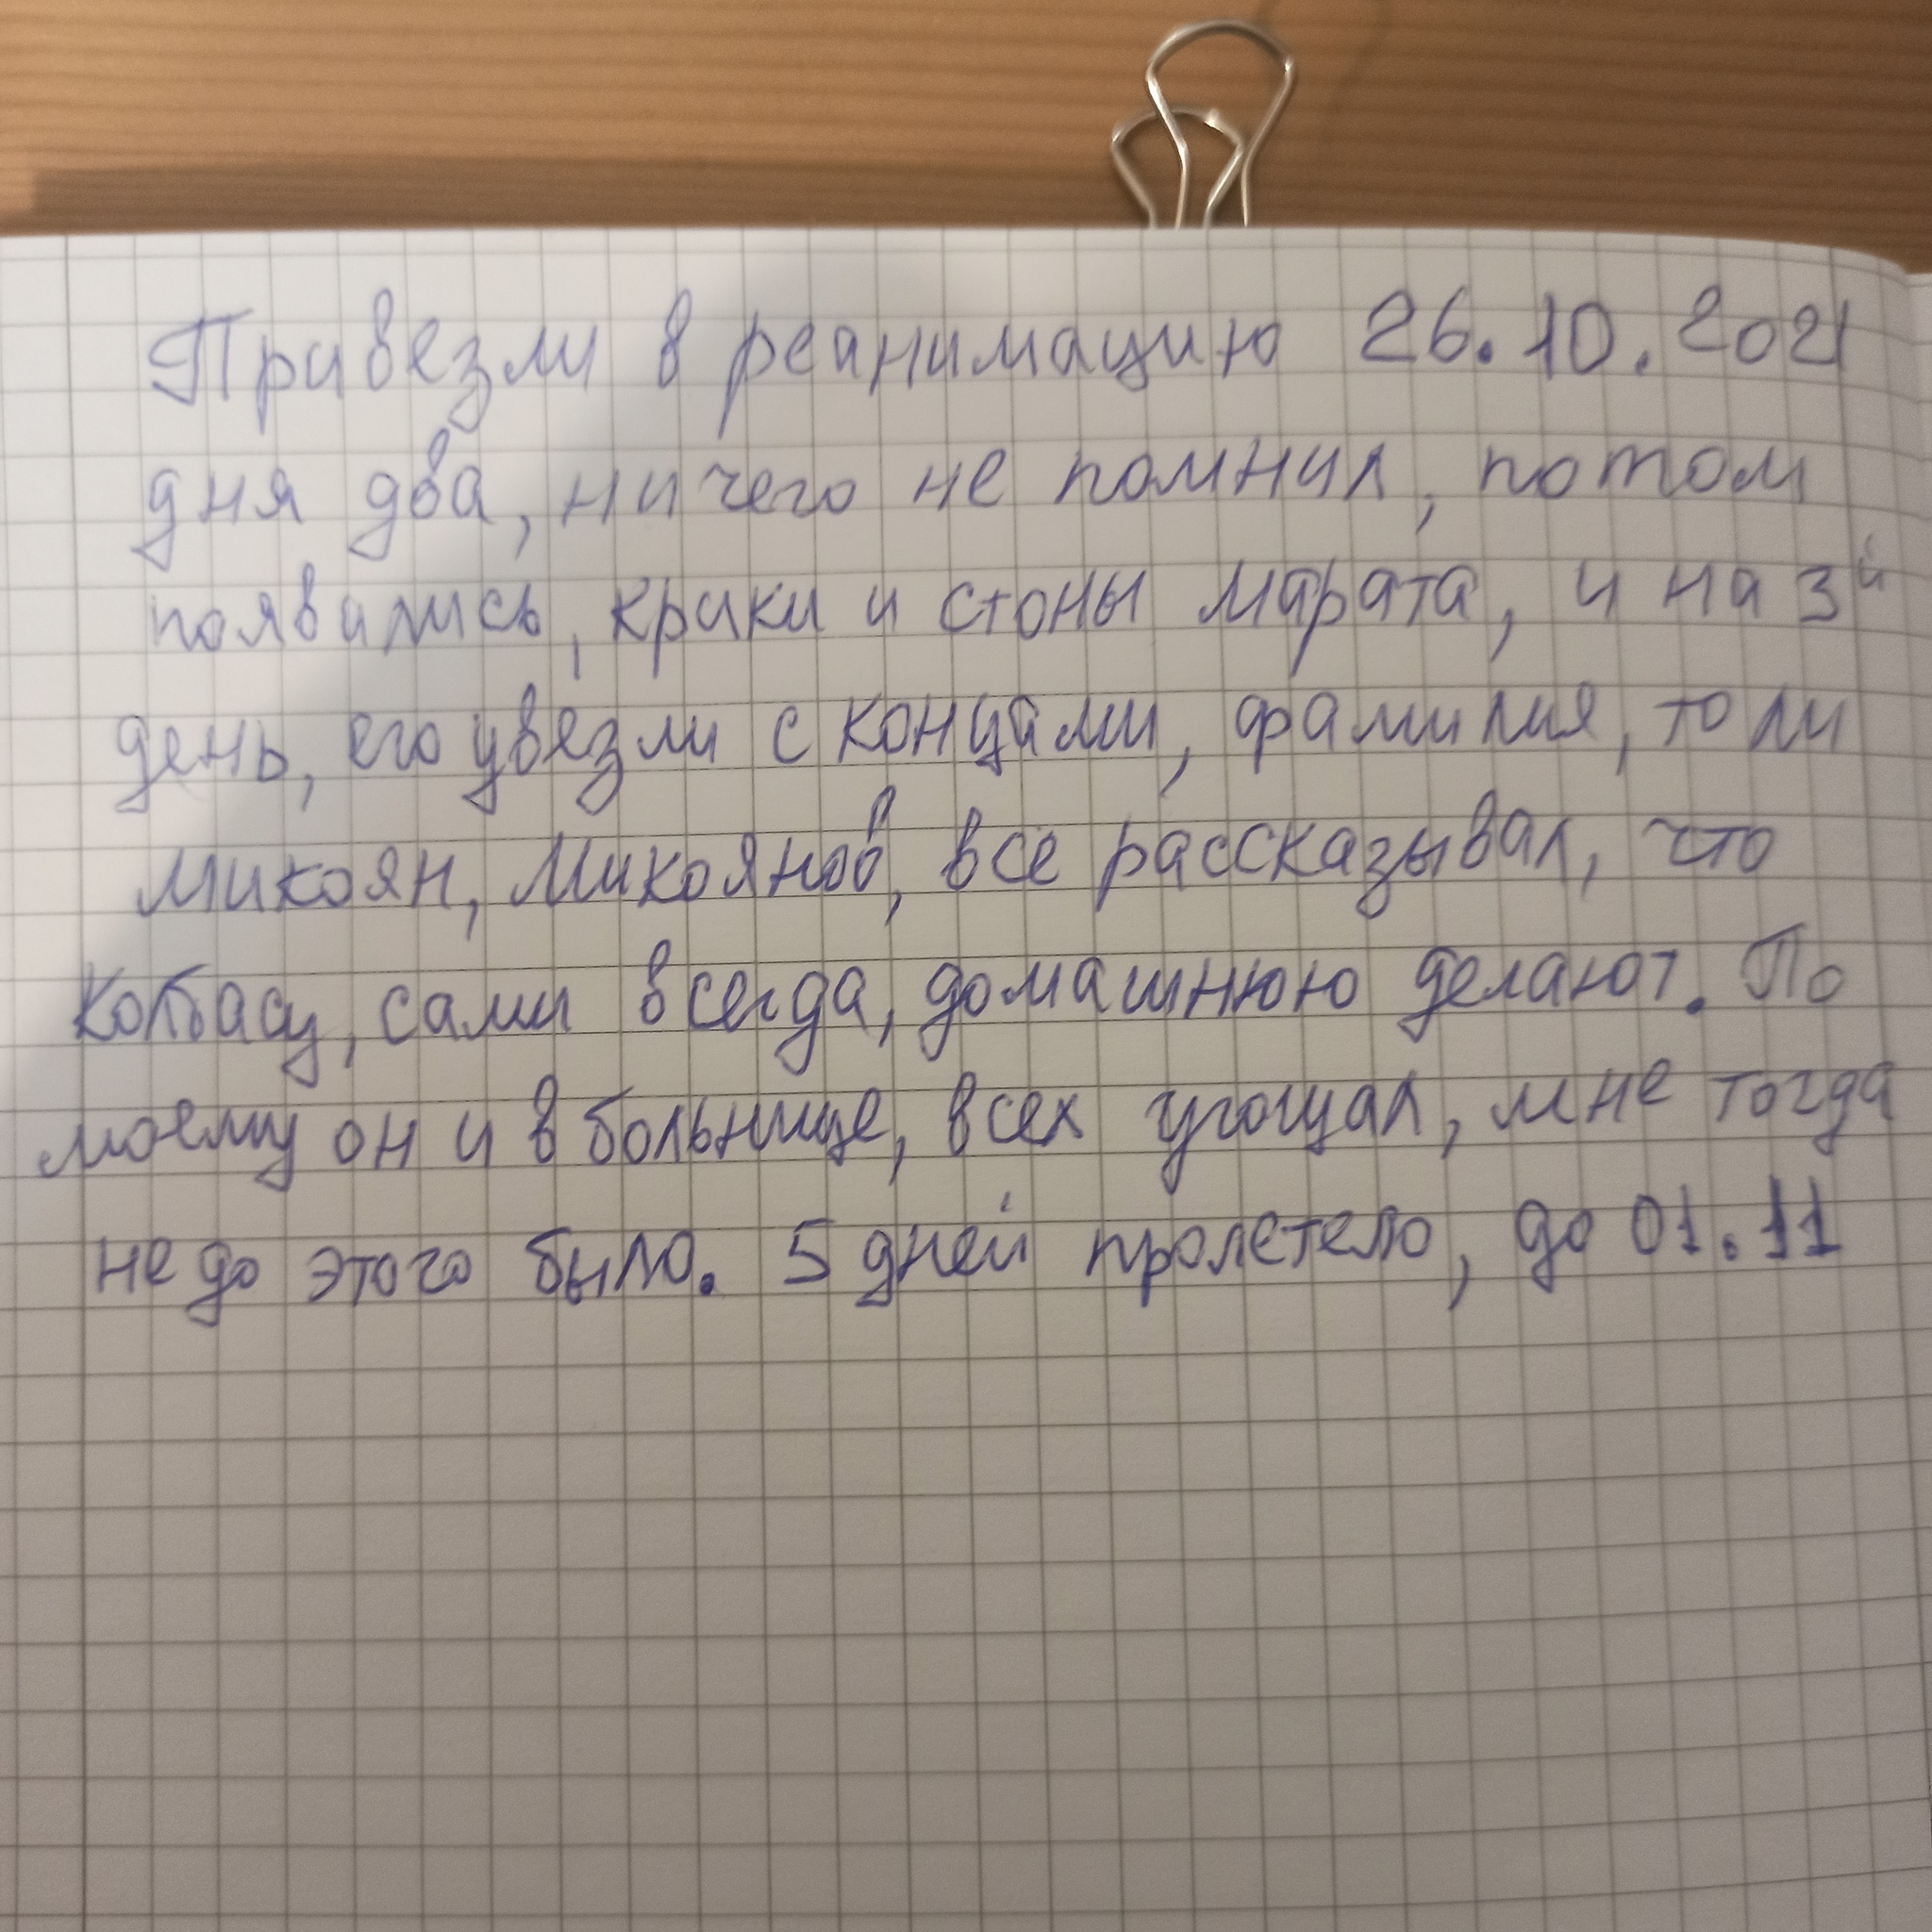 Привезли в реанимацию 26.10.2021
дня два, ничего не помнил, потом
появились, крики и стоны марата, и на 3й
день, его увезли с концами, фамилия, то ли
микоян, Микоянов, все рассказывал, что
колбасу, сами всегда, домашнюю делают. По
моему он и в больнице, всех угощал, мне тогда
не до этого было. 5 дней пролетело, до 01.11